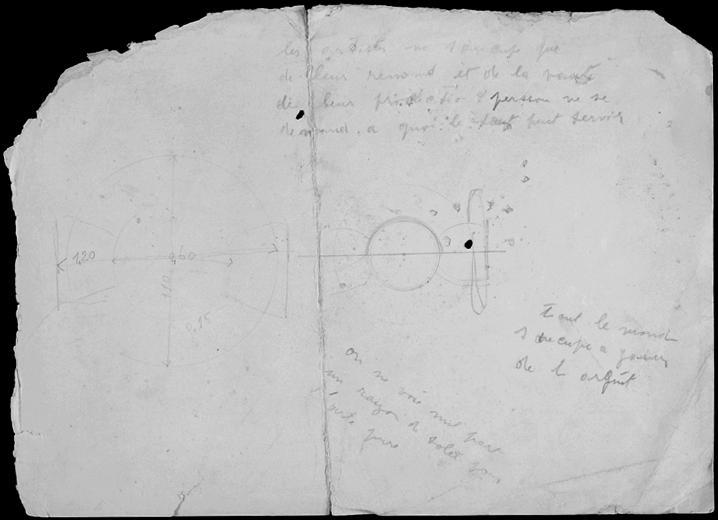 les artistes ne s'occupe que
de leur renom et de la vente
de leur production personn ne se
demand a quoi le tout peut servir
1,20
0,60
1,10
0,15
tout le mond
s occupe a
de l argent
on ne voie nul part
un rayon de soleil